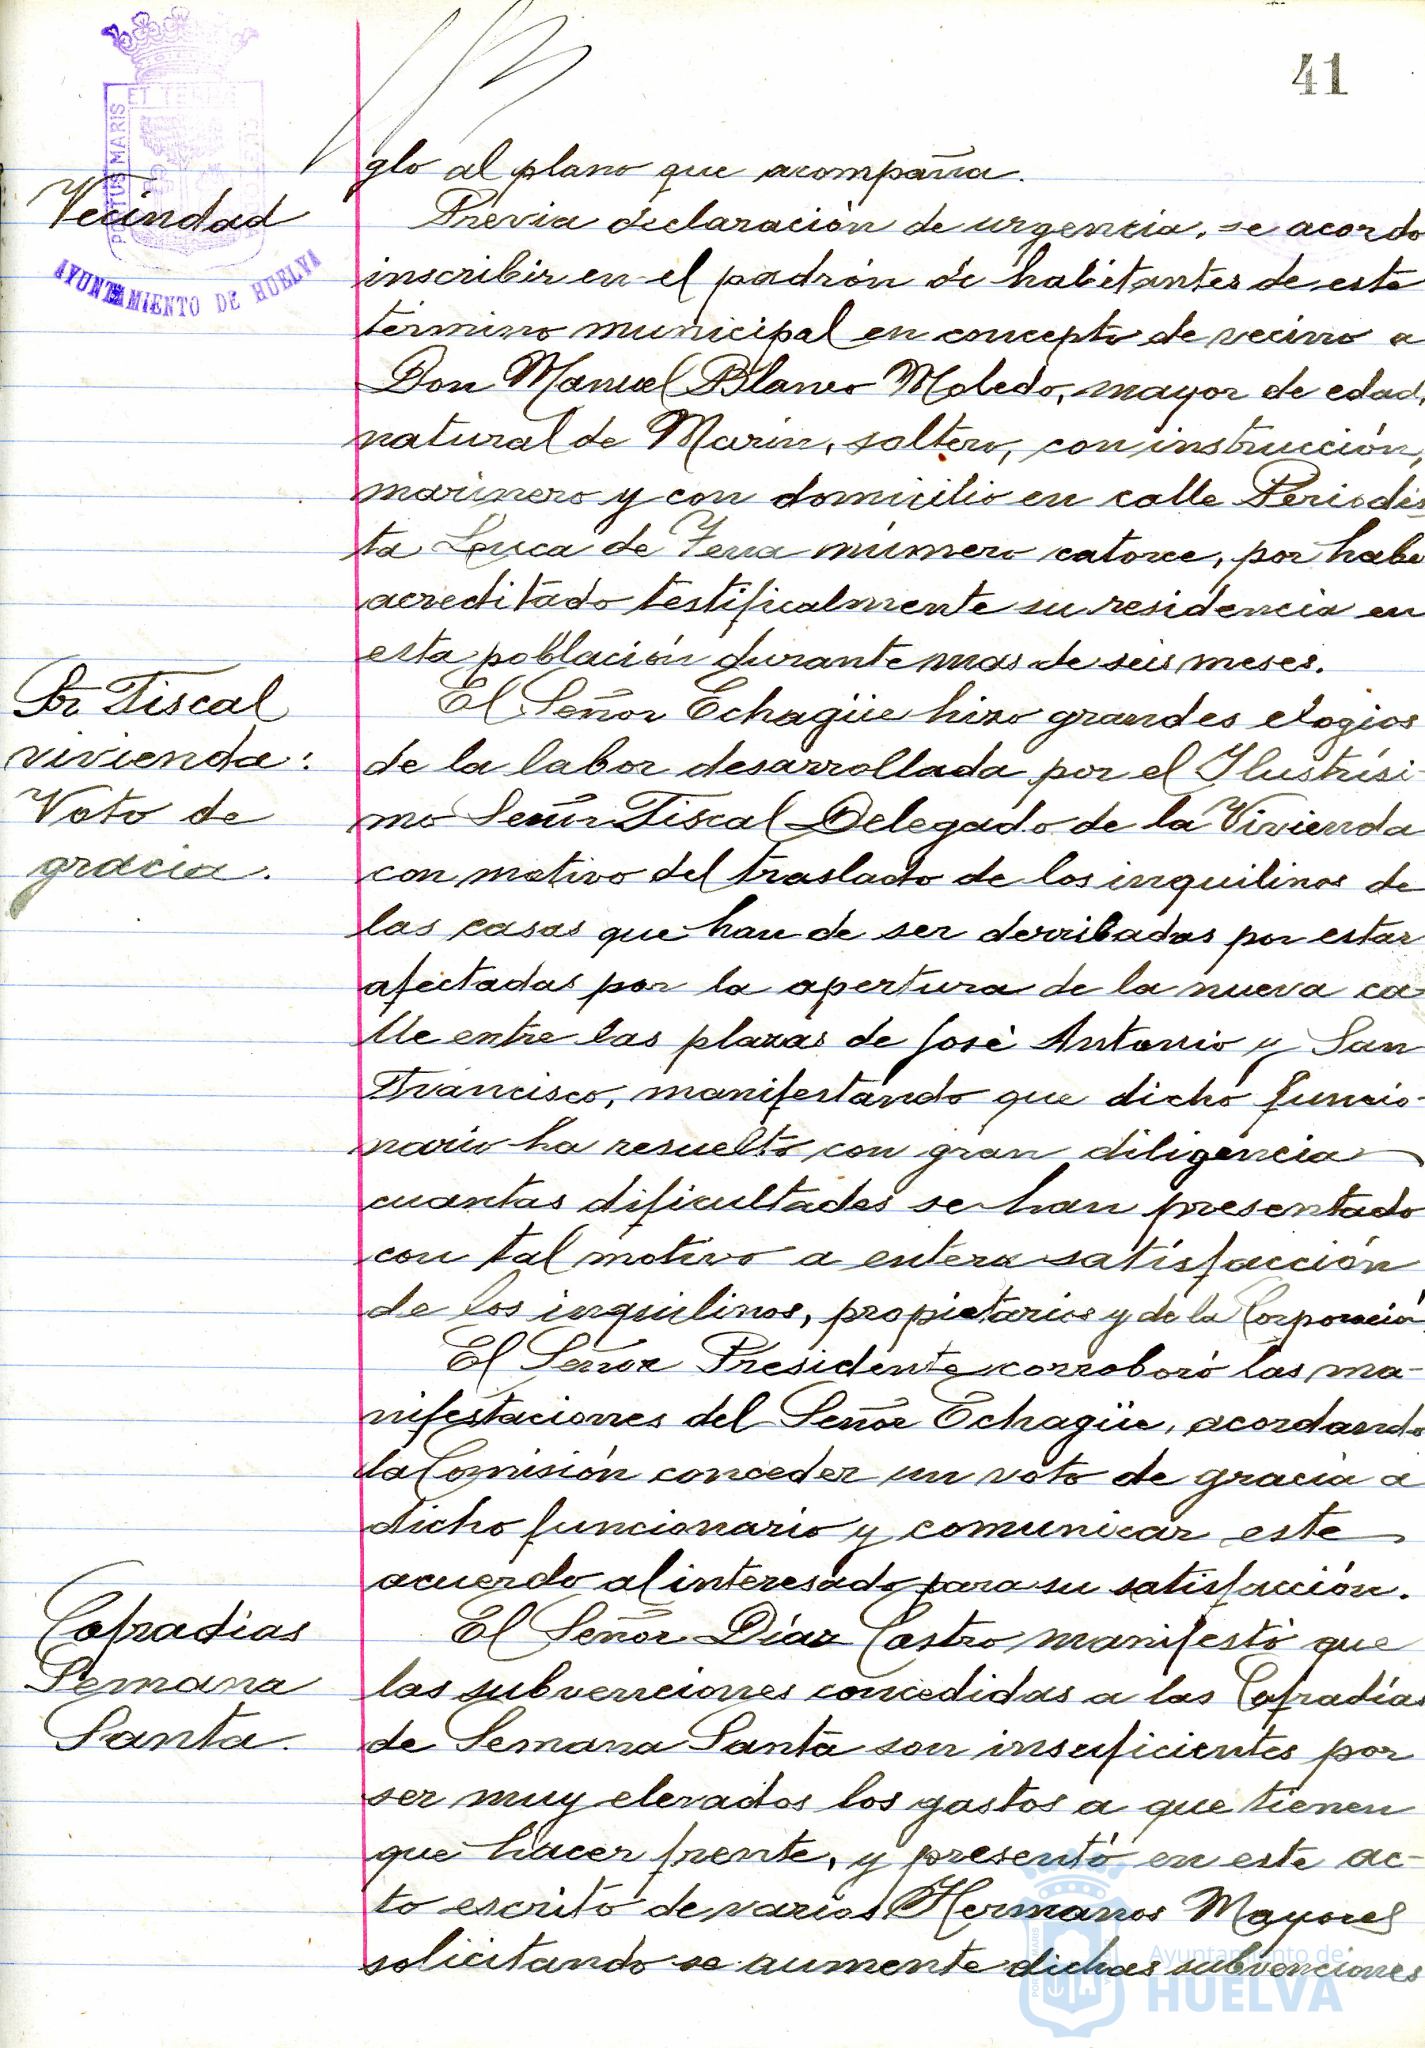 41
glo al plano que acompaña.
Vecindad
Previa declaración de urgencia, se acordo
inscribir en el padrón de habitantes de este
término municipal en concepto de vecino a
Don Manuel Blanco Moledo, mayor de edad,
natural de Marin, soltero, con instrucción,
marinero y con domicilio en calle Periodis
ta Luca de Tena número catorce, por habe
acreditado testificalmente su residencia en
esta población durante mas de seis meses.
Sr Fiscal
vivienda:
Voto de
gracia.
El Señor Echagüe hizo grandes elogios
de la labor desarrollada por el Ilustrísi-
mo Señor Fiscal Delegado de la Vivienda
con motivo del traslado de los inquilinos de
las casas que han de ser derribadas por estar
afectadas por la apertura de la nueva ca-
lle entre las plazas de José Antonio y San
Francisco, manifestando que dicho funcio-
nario ha resuelto con gran diligencia
cuantas dificultades se han presentado
con tal motivo a entera satisfacción
de los inquilinos, propietarios y de la Corporació
El Señor Presidente corroboró las ma-
nifestaciones del Señor Echagüe, acordando
la Comisión conceder un voto de gracia a
dicho funcionario y comunicar este
acuerdo al interesado para su satisfacción.
Cofradias
Semana
Santa.
El Señor Díaz Castro manifestó que
las subvenciones concedidas a las Cofradías
de Semana Santa son insuficientes por
ser muy elevados los gastos a que tienen
que hacer frente, y presentó en este ac-
to escrito de varios Hermanos Mayores
solicitando se aumente dichas subvenciones
PORTUS MARIS
ET TERRE
AYUNTAMIENTO DE HUELVA
Ayuntamiento de
HUELVA